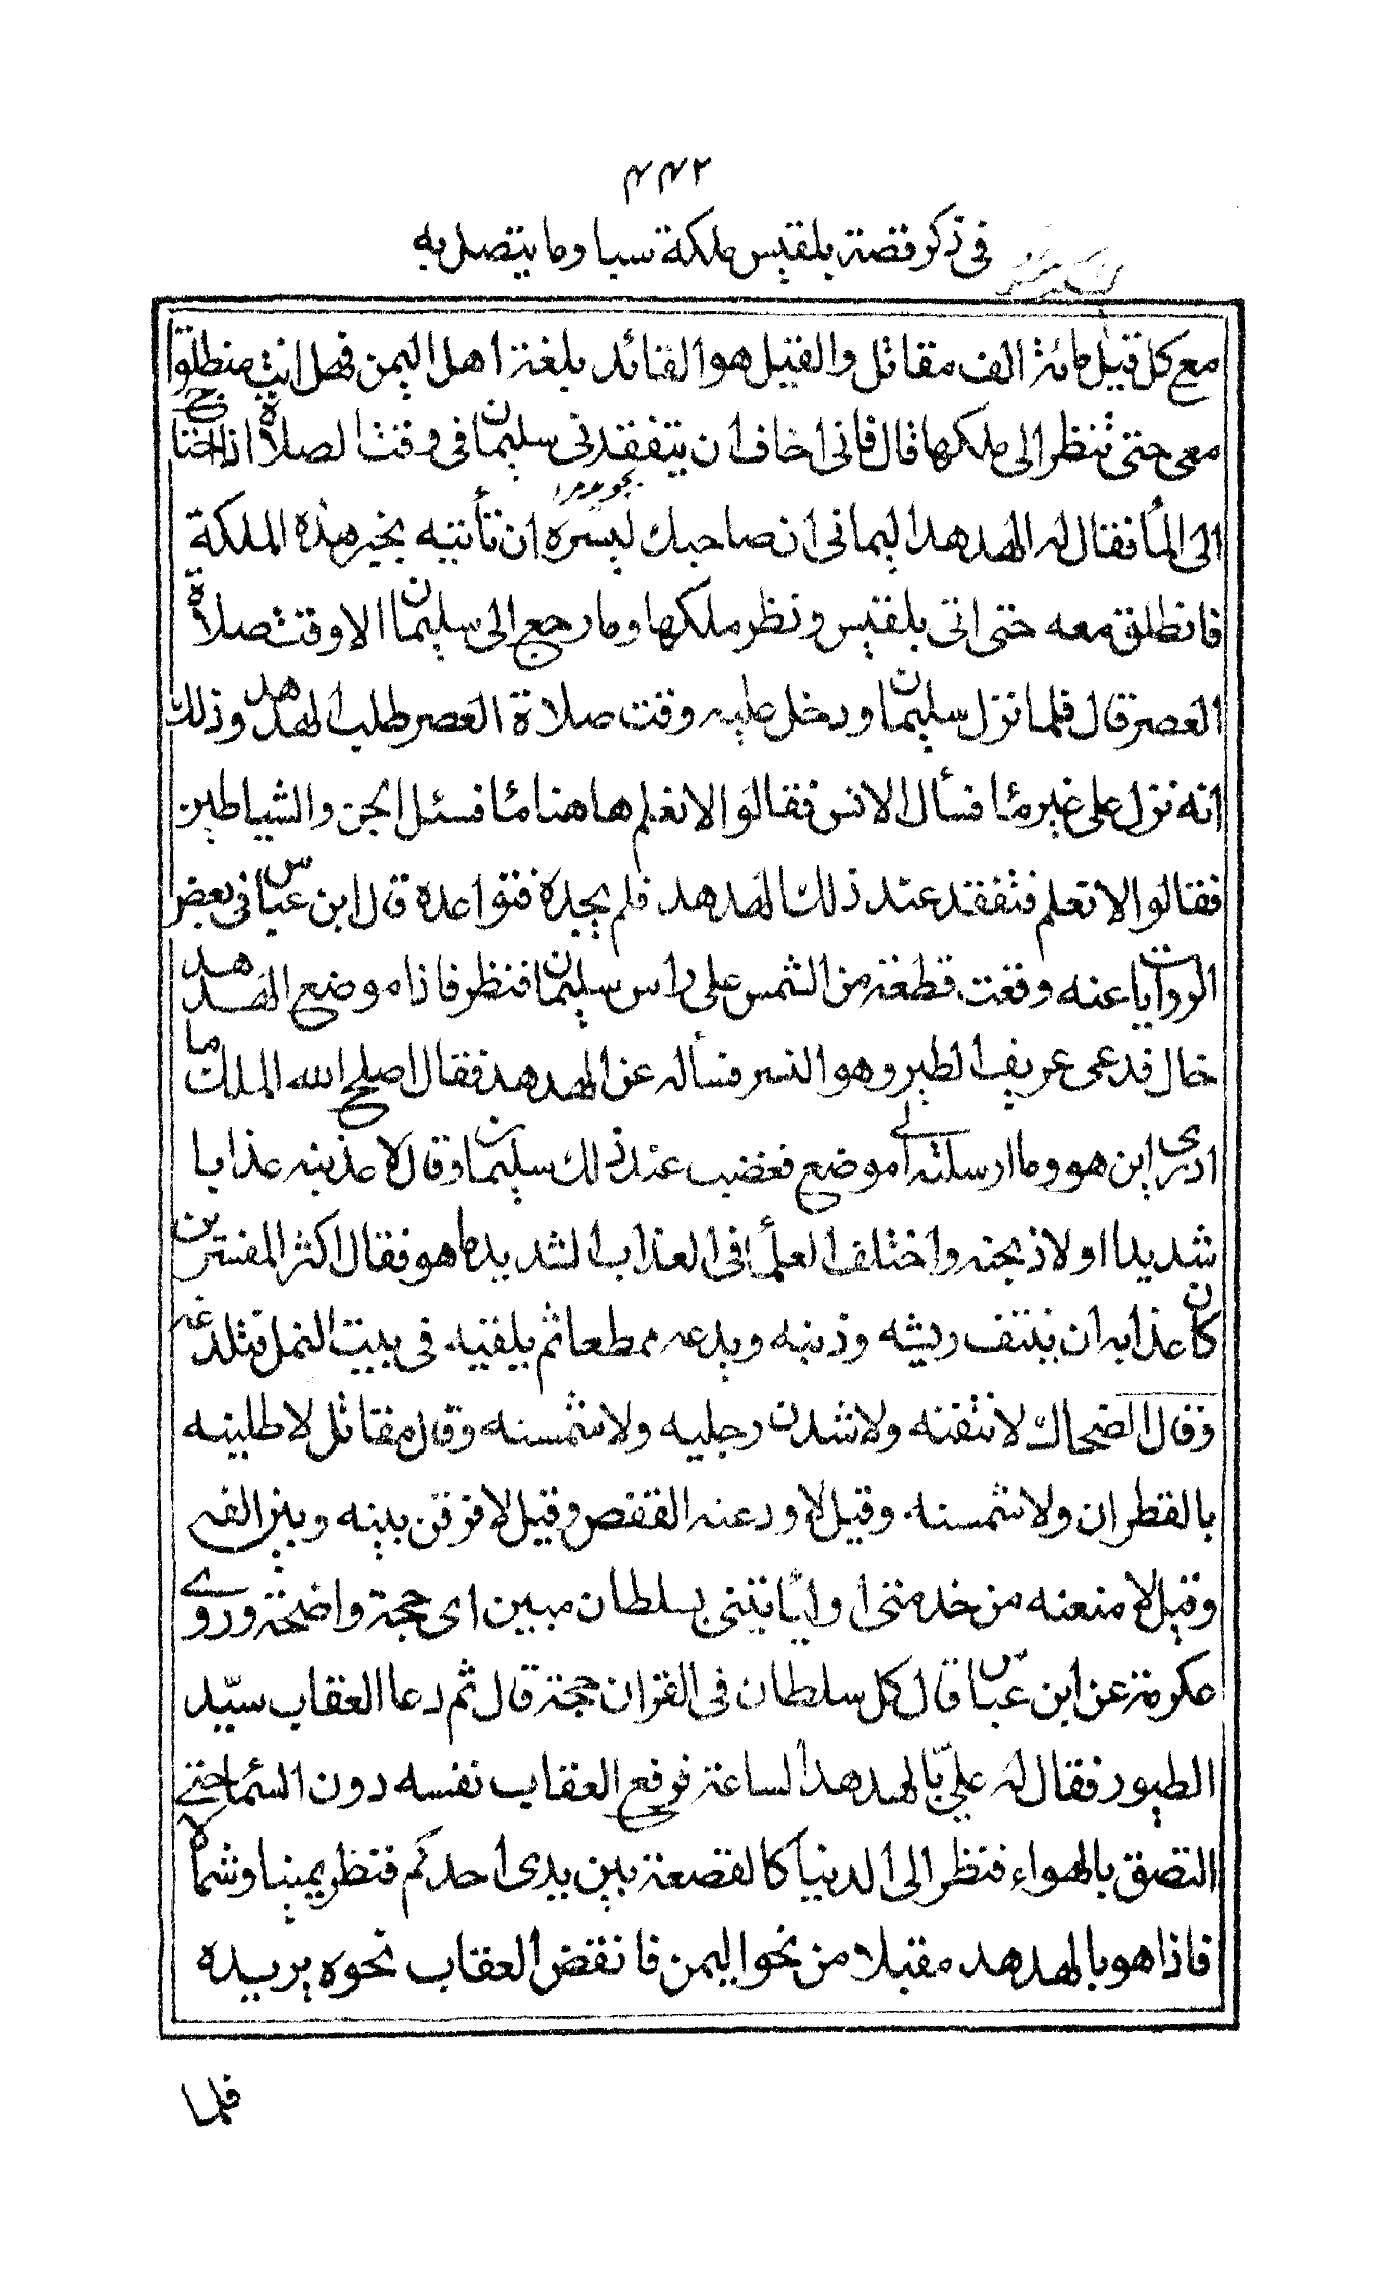 ٤٤٢
في ذكر قصة بلقيس ملكة سبا وما يتصل به
مع كل قيل مائة الف مقاتل والقيل هو القائد بلغة اهل اليمن فهل انت منطلق
معى حتى تنظر الى ملكها قال فانى اخاف ان يتفقدنى سليمان فى وقت الصلاة اذا احتاج
الى الماء فقال له الهدهد اليمانى ان صاحبك ليسره ان تأتيه بخبر هذه الملكة
فانطلق معه حتى اتى بلقيس ونظر ملكها وما رجع الى سليمان الا وقت صلاة
العصر قال فلما نزل سليمان ودخل عليه وقت صلاة العصر طلب الهدهد وذلك
انه نزل على غير ماء فسأل الانس فقالوا لا نعلم هاهنا ماء فسئل الجن والشياطين
فقالوا لا نعلم فتفقد عند ذلك الهدهد فلم يجده فتواعده قال ابن عباس فى بعض
الروايات عنه وقعت قطعة من الشمس على راس سليمان فنظر فاذا موضع الهدهد
خال فدعى عريف الطير وهو النسر فسأله عن الهدهد فقال اصلح الله الملك ما
ادرى اين هو وما ارسلته الى موضع فغضب عند ذلك سليمان وقال لاعذبنه عذابا
شديدا او لاذبحنه واختلف العلماء فى العذاب الشديد ما هو فقال اكثر المفسرين
كان عذابه ان ينتف ريشه وذنبه ويدعه ممطعا ثم يلقيه فى بيت النمل فتلدغه
وقال الضحاك لانتفنه ولاشدن رجليه ولاشمسنه وقال مقاتل لاطلينه
بالقطران ولاشمسنه وقيل لاودعنه القفص وقيل لافرقن بينه وبين الفه
وقيل لامنعنه من خدمتى او ليأتيني بسلطان مبين اى حجة واضحة وروى
عكرمة عن ابن عباس قال كل سلطان فى القرآن حجة قال ثم دعا العقاب سيّد
الطيور فقال له علىّ بالهدهد الساعة فرفع العقاب نفسه دون السماء حتى
التصق بالهواء فنظر الى الدنيا كالقصعة بين يدى احدكم فنظر يمينا وشمالا
فاذا هو بالهدهد مقبلا من نحو اليمن فانقض العقاب نحوه يريده
فلما